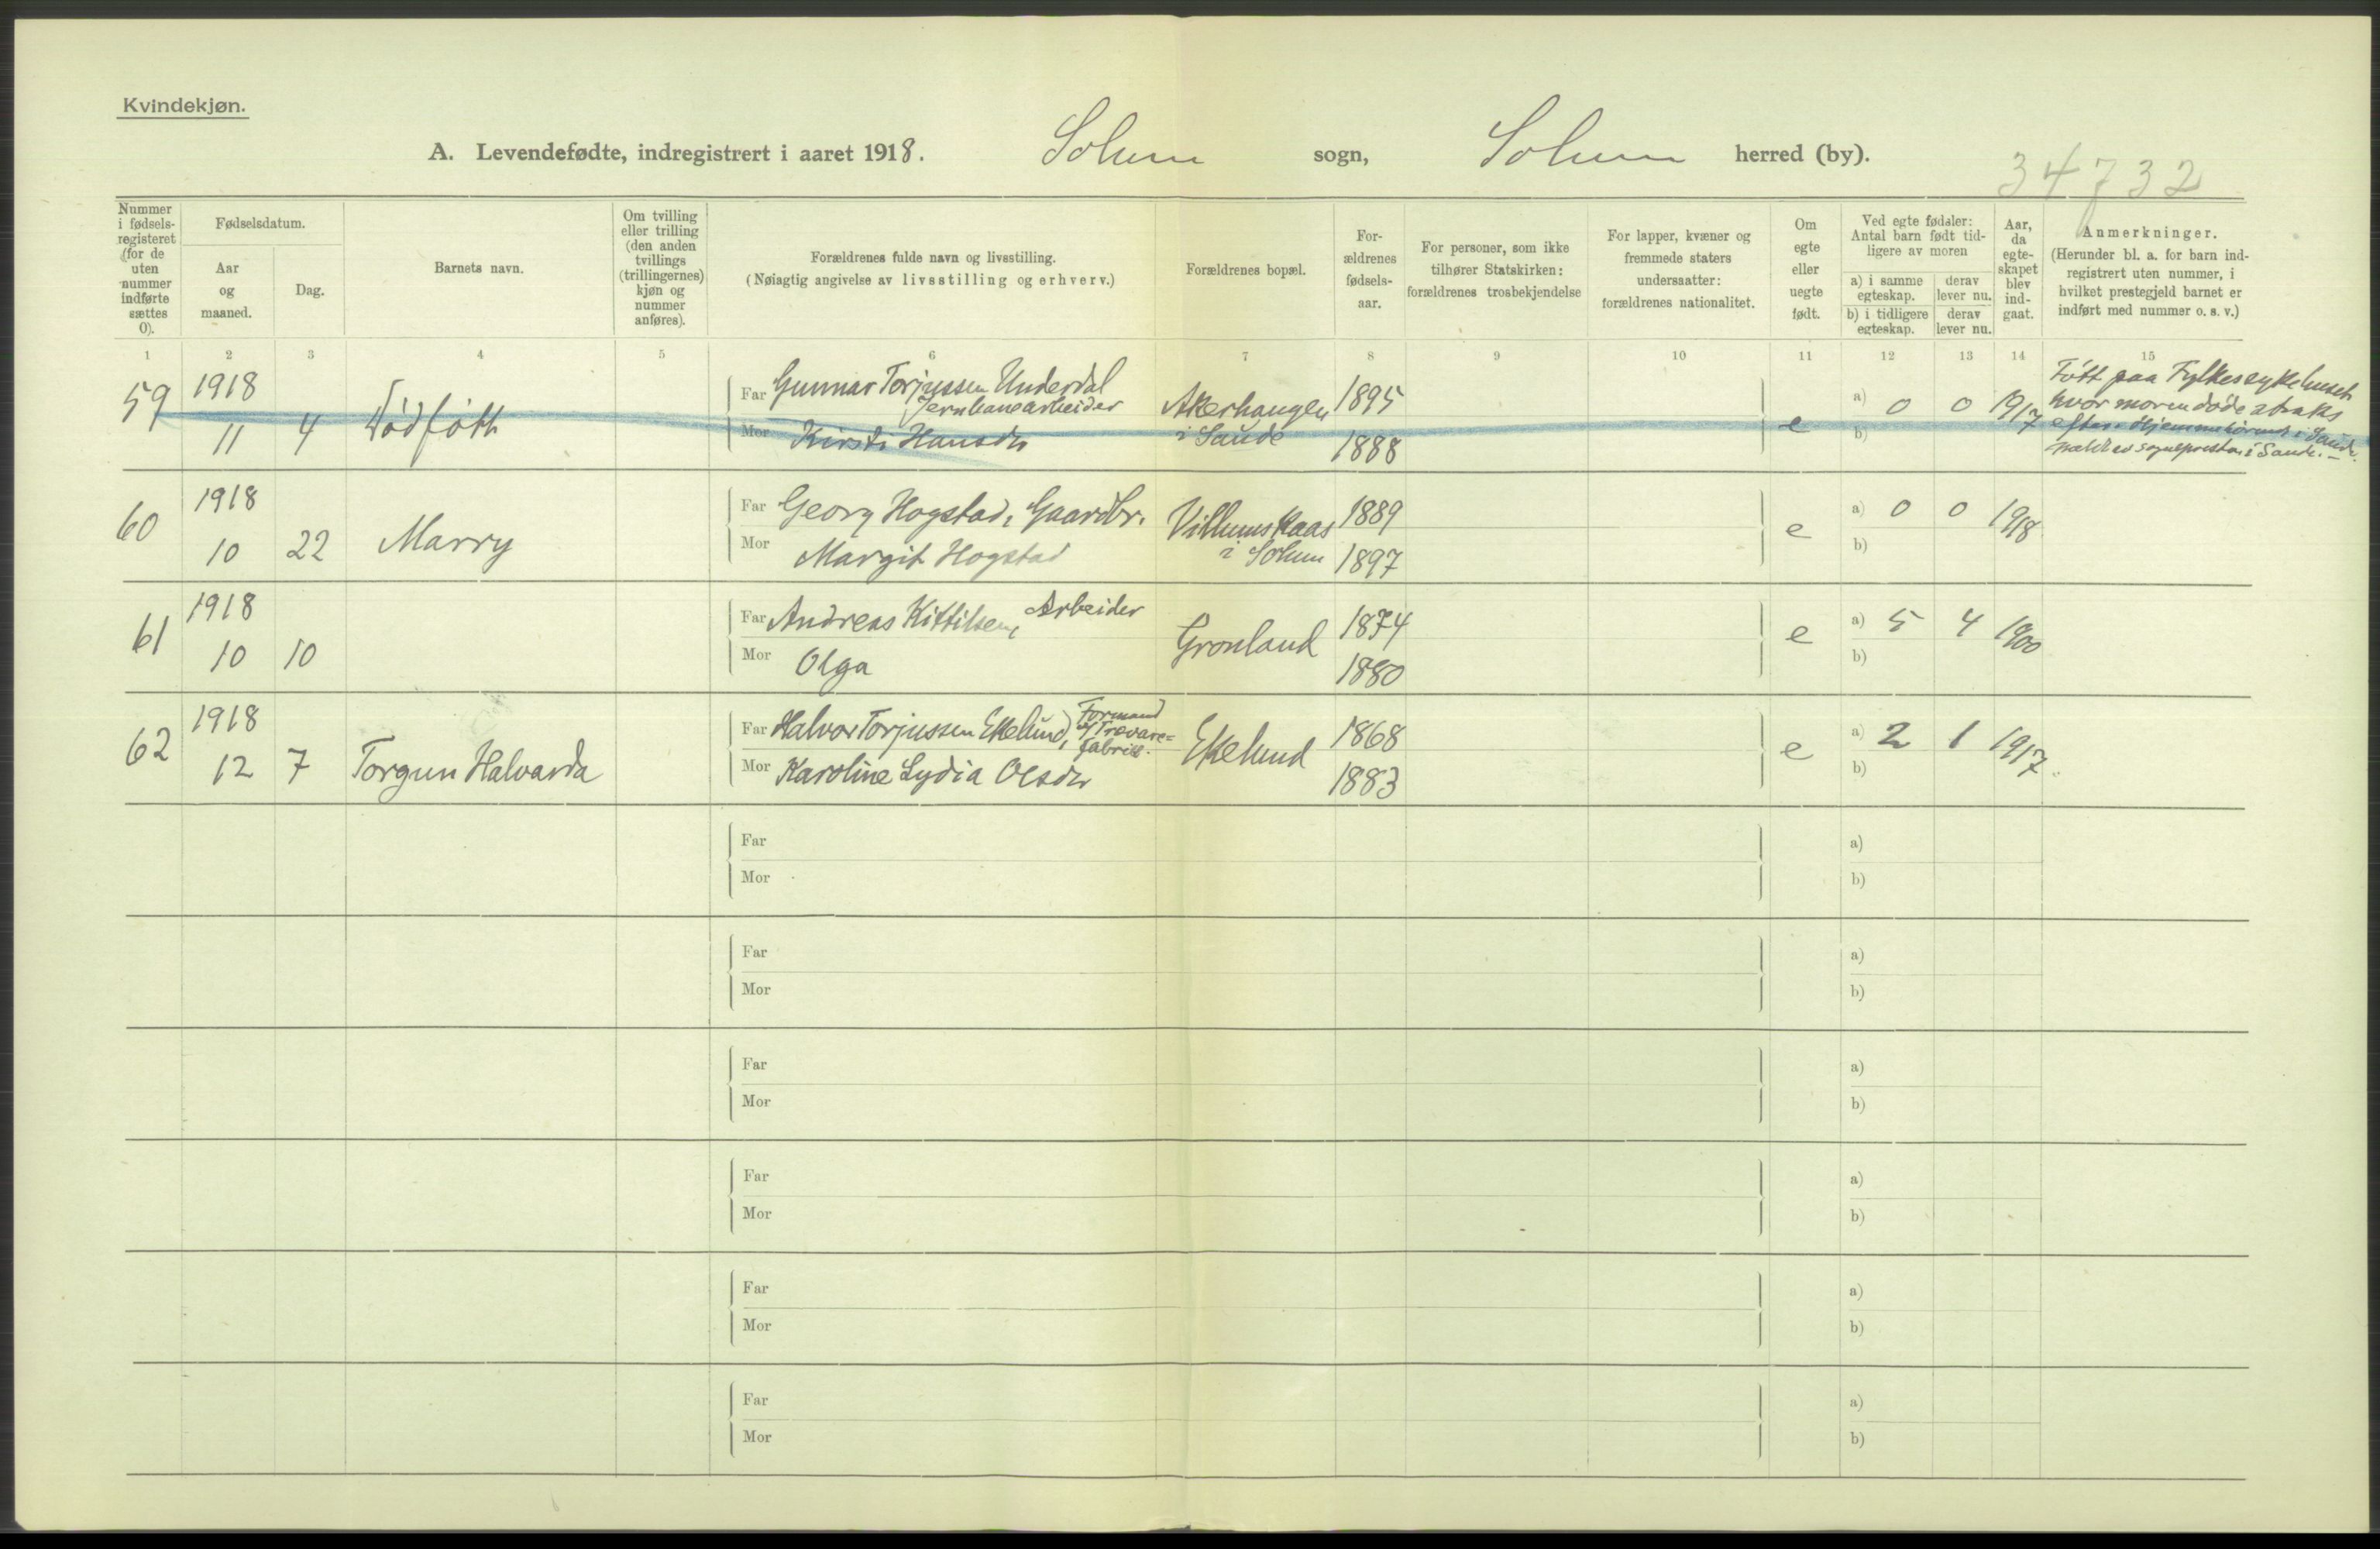 Kvindekjøn.
A. Levendefødte, indregistrert i aaret 1918. Solum sogn, Solum herred (by).
34732
Nummer i fødsels-registeret (for de uten nummer indførte sættes 0).
Fødselsdatum.
Aar og maaned.
Dag.
Barnets navn.
Om tvilling eller trilling (den anden tvillings (trillingernes) kjøn og nummer anføres).
Forældrenes fulde navn og livsstilling.
(Nøiagtig angivelse av livsstilling og erhverv.)
Forældrenes bopæl.
For-ældrenes fødsels-aar.
For personer, som ikke tilhører Statskirken: forældrenes trosbekjendelse
For lapper, kvæner og fremmede staters undersaatter: forældrenes nationalitet.
Om egte eller uegte født.
Ved egte fødsler: Antal barn født tid-ligere av moren
a) i samme egteskap.
derav lever nu.
b) i tidligere egteskap.
derav lever nu.
Aar, da egte-skapet blev ind-gaat.
Anmerkninger.
(Herunder bl. a. for barn ind-registrert uten nummer, i hvilket prestegjeld barnet er indført med nummer o. s. v.)
1 2 3 4 5 6 7 8 9 10 11 12 13 14 15
59 1918 11 4 Dødfött
Far Gunnar Torjussen Underdal
Jernbanearbeider
Mor Kirsti Hansdr
Akerhaugen
i Saude
1895
1888
e a) 0 0 1917
b)
Fött paa Fylkessykehuset
hvor moren döde straks
efter. Hjemmehörende i Saude.
sognepresten i Saude.
60 1918 10 22 Marry
Far Georg Hogstad, Gaardbr.
Mor Margit Hogstad
Villumskaas
i Solum
1889
1897
e a) 0 0 1918
b)
61 1918 10 10
Far Andreas Kittilsen, Arbeider
Mor Olga
Grönland
1874
1880
e a) 5 4 1900
b)
62 1918 12 7 Torgun Halvarda
Far Halvor Torjussen Ekelund, Formand
v/ Trævare-
fabrik.
Mor Karoline Lydia Olsdr
Ekelund
1868
1883
e a) 2 1 1917
b)
Far a)
Mor b)
Far a)
Mor b)
Far a)
Mor b)
Far a)
Mor b)
Far a)
Mor b)
Far a)
Mor b)